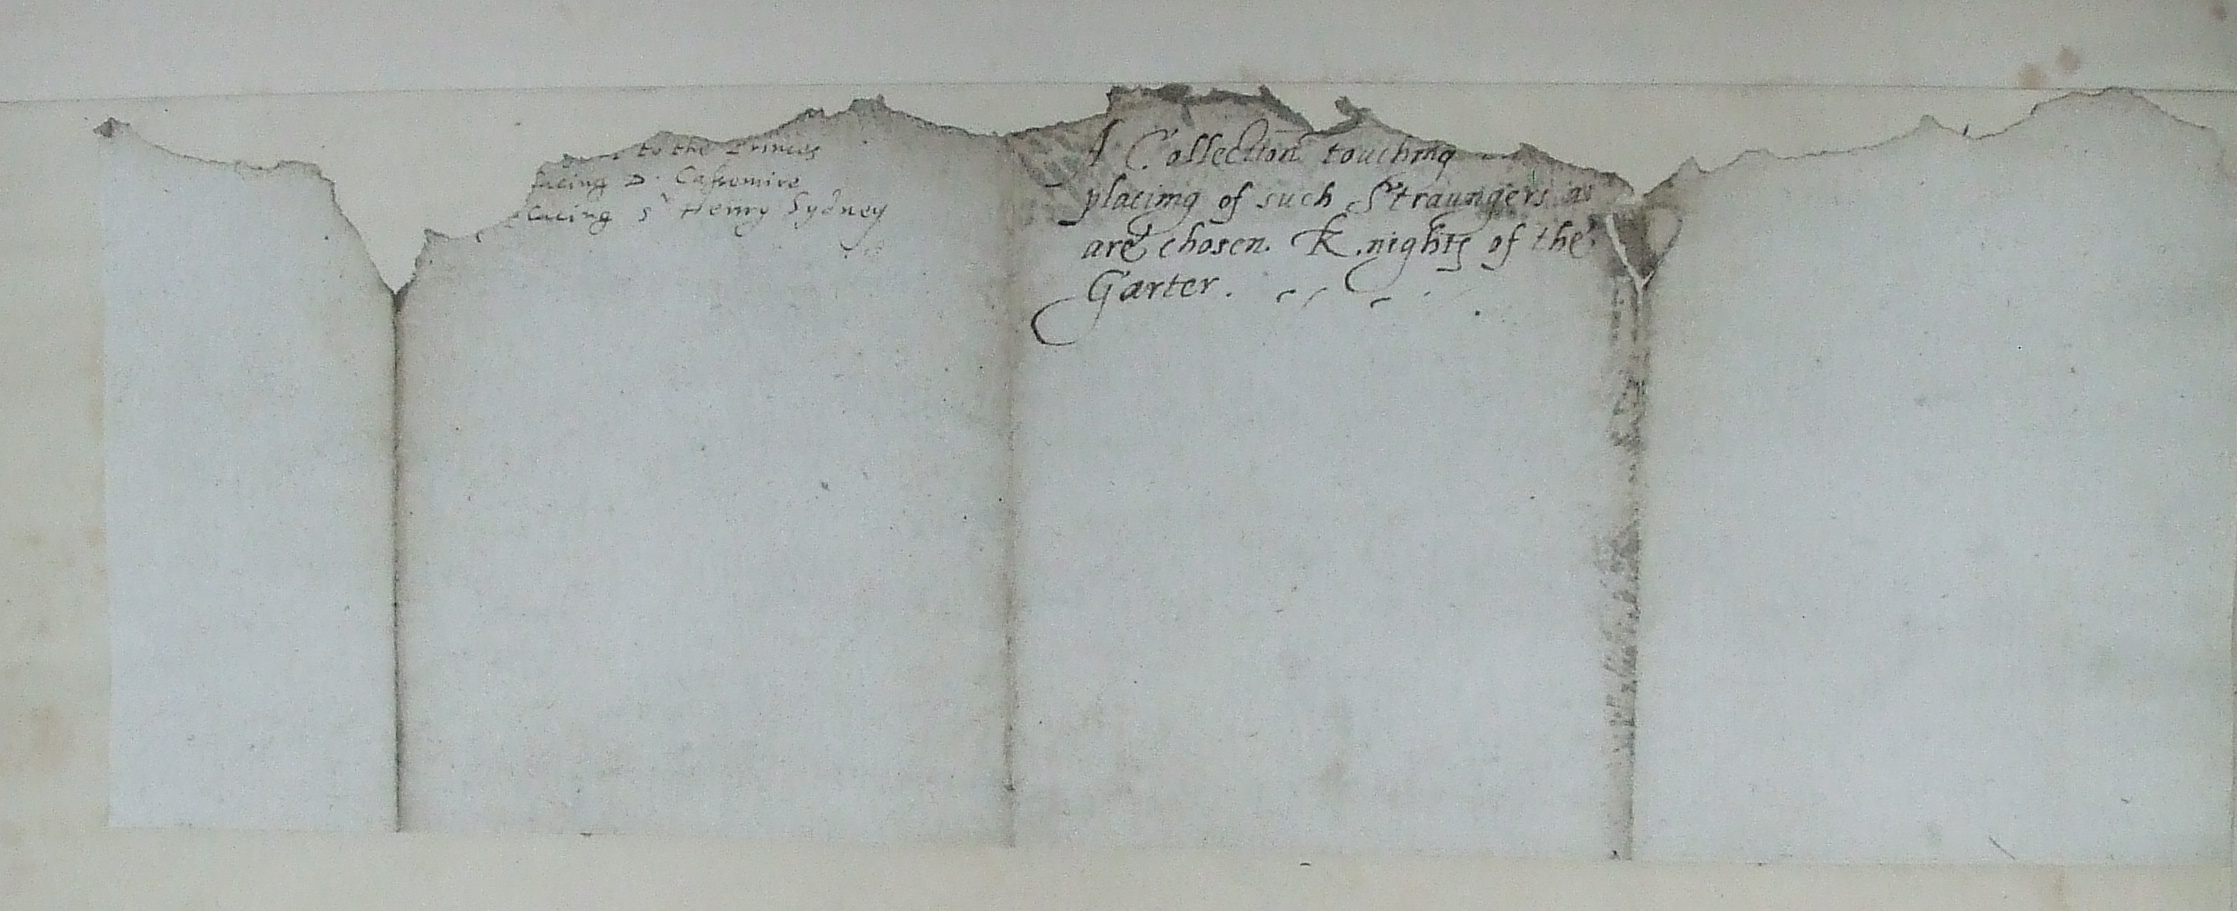 to the Princes
placing D. Casemire
placing Sr Henry Sydney
A Collection touching
placing of such Straungers as
are chosen Knights of the
Garter.